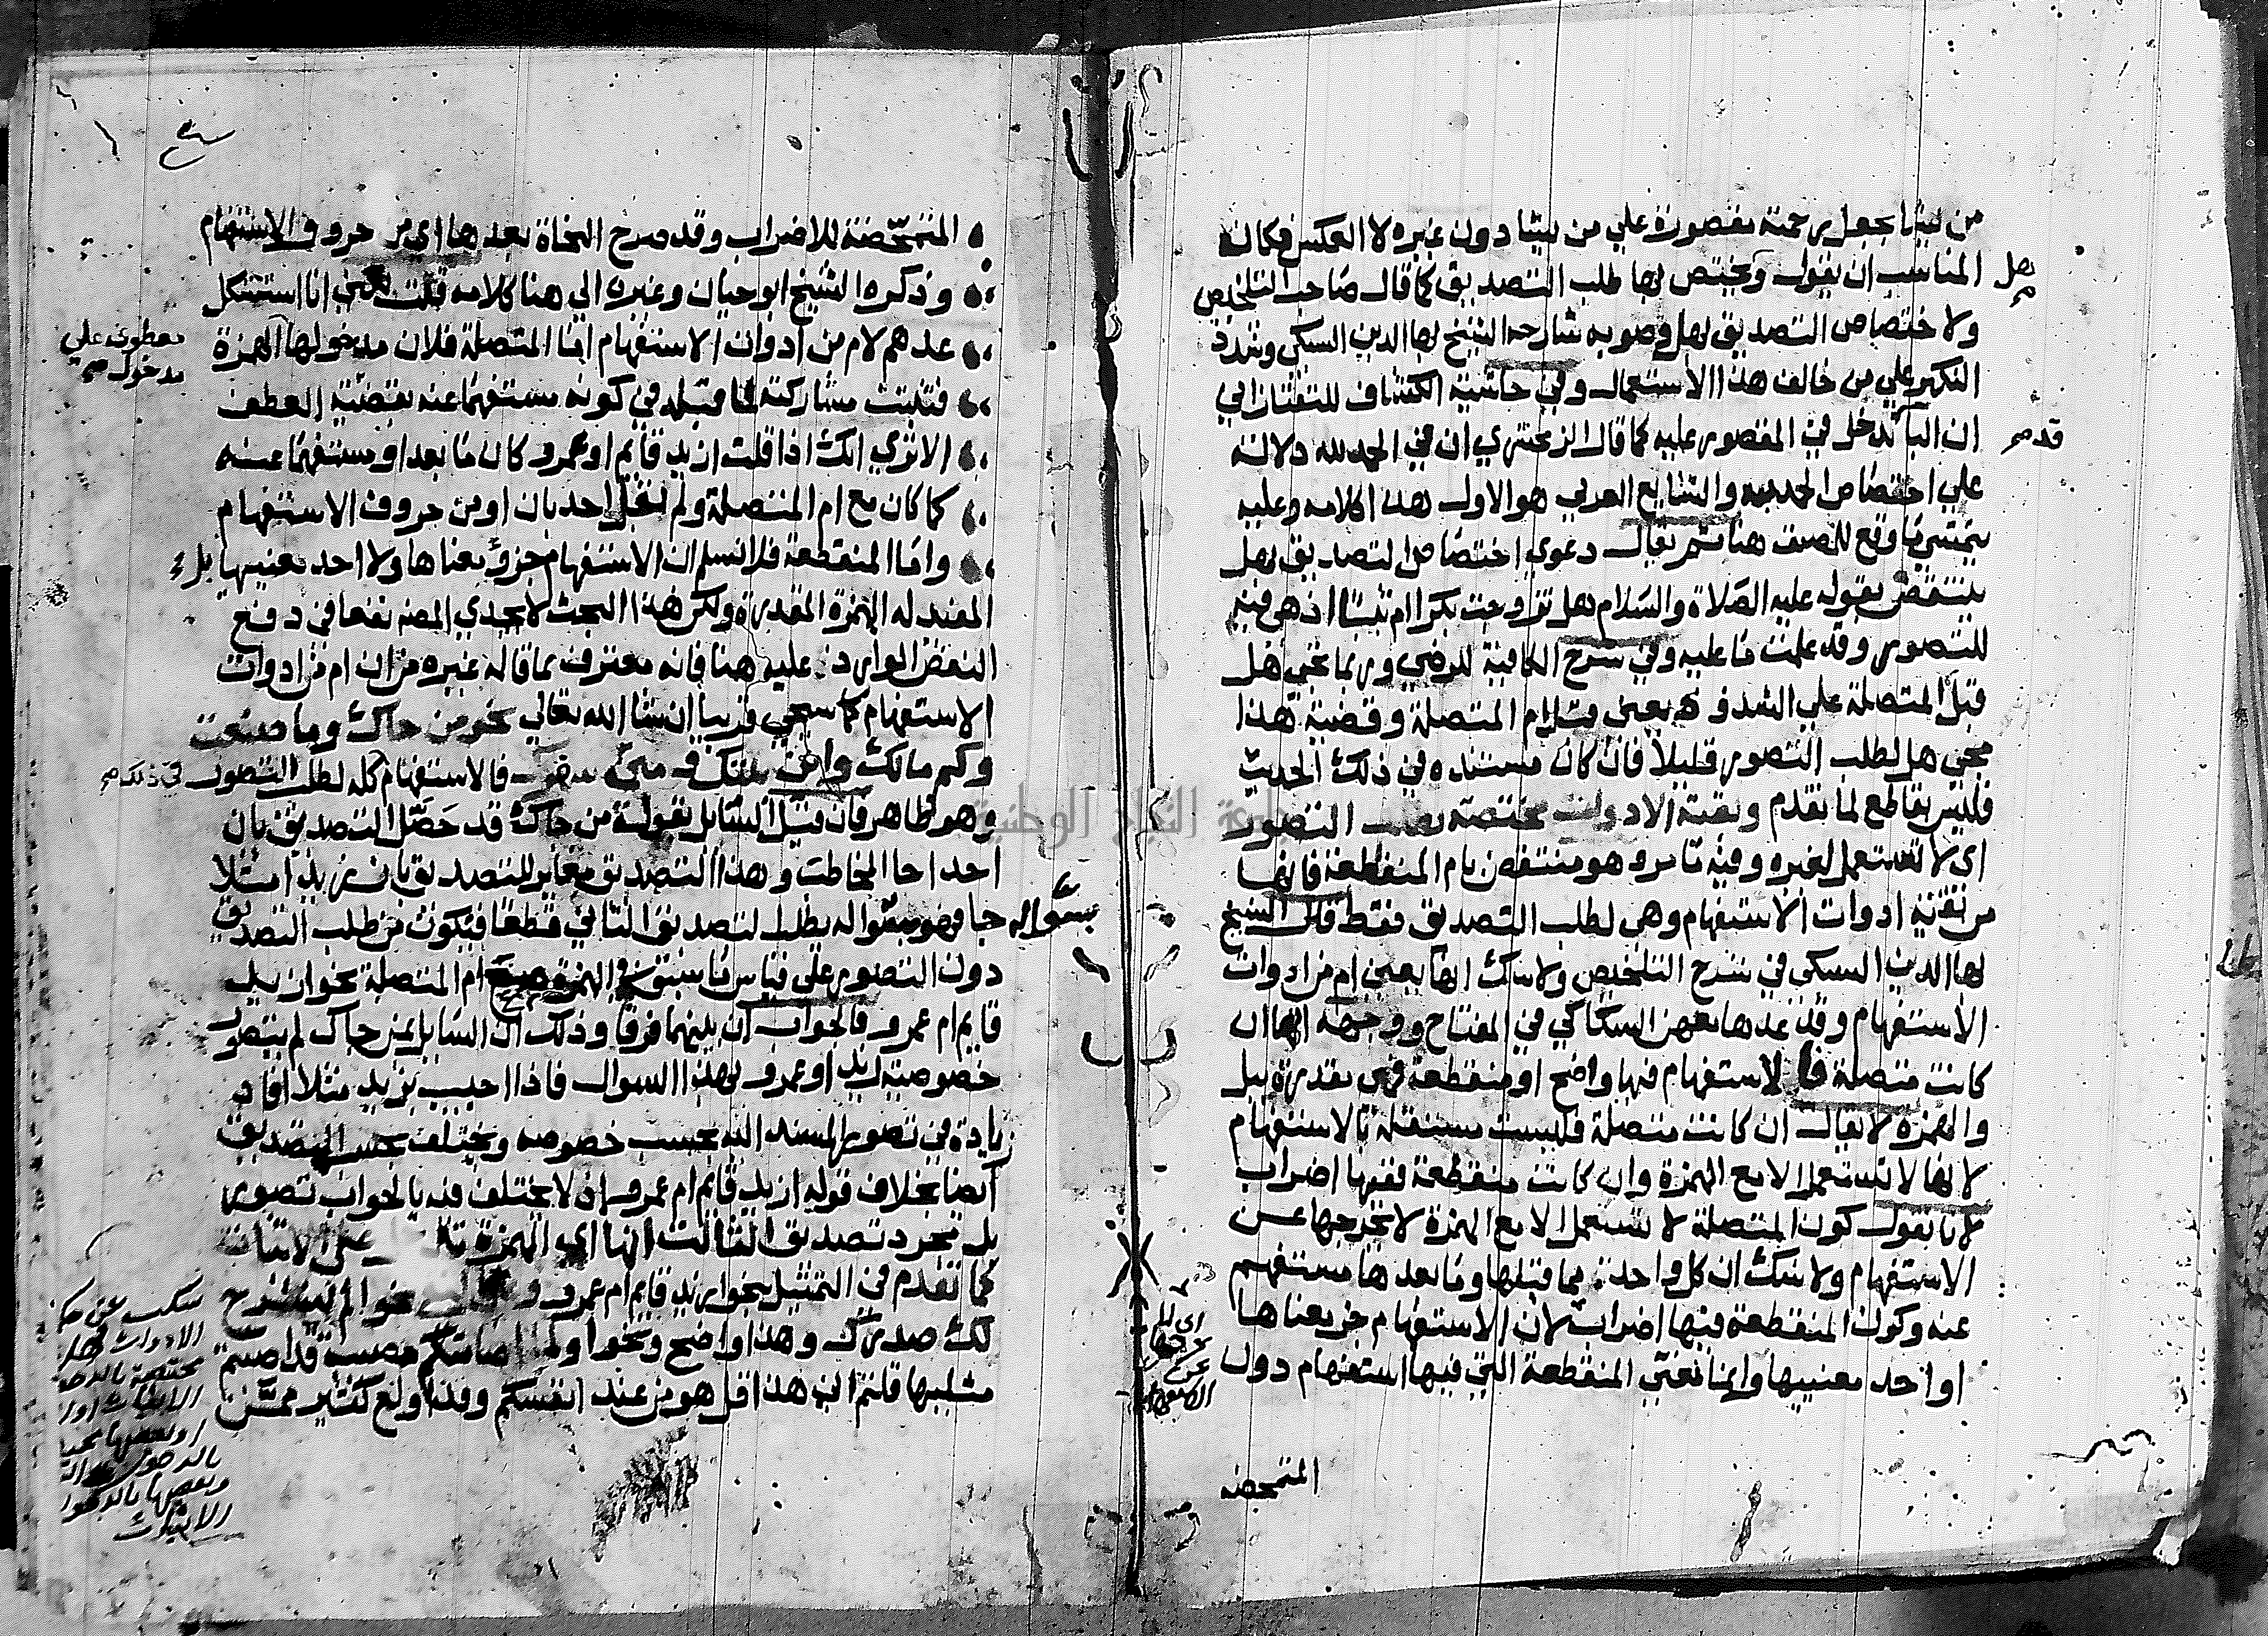 من يشا بجعل رحمته مقصورة علي من يشا دون غيره لا العكس فكان
المناسب ان يقول ويختص بها طلب التصديق كما قال صاحب التلخيص
هل صح
ولاختصاص التصديق بهل وصوبه شارحه الشيخ بها الدين السبكي وشدد
النكير علي من خالف هذا الاستعمال وفي حاشية الكشاف للتفتازاني
ان البا تدخل في المقصور عليه كما قال الزمخشري ان في الحمد لله دلالة
قد صح
علي اختصاص الحمد به والشايع العربي هو الاول هذا كلامه وعليه
يتمشي ما وقع للمصنف هنا ثم يقال دعوي اختصاص التصديق بهل
ينتقض بقوله عليه الصلاة والسلام هل تزوجت بكرا ام ثيبا اذ هي فيه
للتصور وقد علمت ما عليه وفي شرح الكافية للرضي وربما تجي هل
قبل المتصلة علي الشذوذ يعني قبل ام المتصلة وقضية هذا
مجي هل لطلب التصور قليلا فان كان مستنده في ذلك الحديث
فليس بقاطع لما تقدم وبقية الادوات مختصة بطلب التصور
اي لا تستعمل لغيره وفيه تامر وهو منتقض بام المنقطعة فانها
من بقية ادوات الاستفهام وهي لطلب التصديق فقط قال الشيخ
بها الدين السبكي في شرح التلخيص ولا شك انها يعني ام من ادوات
الاستفهام وقد عدها معهن السكاكي في المفتاح ووجهه انها ان
كانت متصلة فالاستفهام فيها واضح او منقطعة فهي مقدرة ببل
والهمزة لا يقال ان كانت متصلة فليست مستقلة بالاستفهام
لانها لا تستعمل الا مع الهمزة وان كانت منقطعة ففيها اضراب
لانا نقول كون المتصلة لا تستعمل الا مع الهمزة لا يخرجها عن
الاستفهام ولا شك ان كل واحدة مما قبلها وما بعدها مستفهم
عنه وكون المنقطعة فيها اضراب لان الاستفهام جز معناها
او احد معنييها وانما نعني المنقطعة التي فيها استفهام دون
المتمحضه
المتمحضة للاضراب وقد صرح النحاة بعدها اي من حروف الاستفهام
وذكره الشيخ ابو حيان وغيره الي هنا كلامه قلت انا استشكل
عدهم لام من ادوات الاستفهام اما المتصلة فلان مدخولها الهمزة
معطوف علي
مدخول صح
فتثبت مشاركته لما قبله في كونه مستفهما عنه بقضية العطف
الا تري انك اذا قلت ازيد قايم او عمرو كان ما بعد او مستفهما عنه
كما كان مع ام المتصلة ولم يقل احد بان او من حروف الاستفهام
واما المنقطعة فلا نسلم ان الاستفهام جزؤ معناها ولا احد معنييها بل
المفيد له الهمزة المقدرة ولكن هذا البحث لا يجدي المصنف نفعا في دفع
النقض الوارد عليه هنا فانه معترف بما قاله غيره من ان ام من ادوات
الاستفهام كما سيجي قريبا ان شا الله تعالي نحو من جاك وما صنعت
وكم مالك واين بيتك ومتي سفرك فالاستفهام كله لطلب التصور
في ذلك صح
وهو ظاهر فان قيل السايل بقوله من جاك قد حصل التصديق بان
احدا جا المخاطب وهذا التصديق مغاير للتصديق بان زيدا مثلا
جا فهو بسواله يطلب التصديق الثاني قطعا فيكون من طلب التصديق
بسواله
دون التصور علي قياس ما سبق في الهمزة مع ام المتصلة نحو ازيد
قايم ام عمرو فالجواب ان بينهما فرقا وذلك ان السايل بمن جاك لم يتصور
خصوصية زيد او عمرو بهذا السوال فاذا اجيب بزيد مثلا افاد
زيادة في تصور المسند اليه بحسب خصوصه ويختلف بحسبه التصديق
ايضا بخلاف قوله ازيد قايم ام عمرو فانه لا يختلف فيه بالجواب تصور
بل مجرد تصديق الثالث انها اي الهمزة علي الاثبات
كما تقدم في التمثيل بنحو ازيد قايم ام عمرو و نحو الم نشرح
لك صدرك وهذا واضح ونحو اولما اصابتكم مصيبة قد اصبتم
مثليها قلتم اني هذا قل هو من عند انفسكم وقد اولع كثير ممن